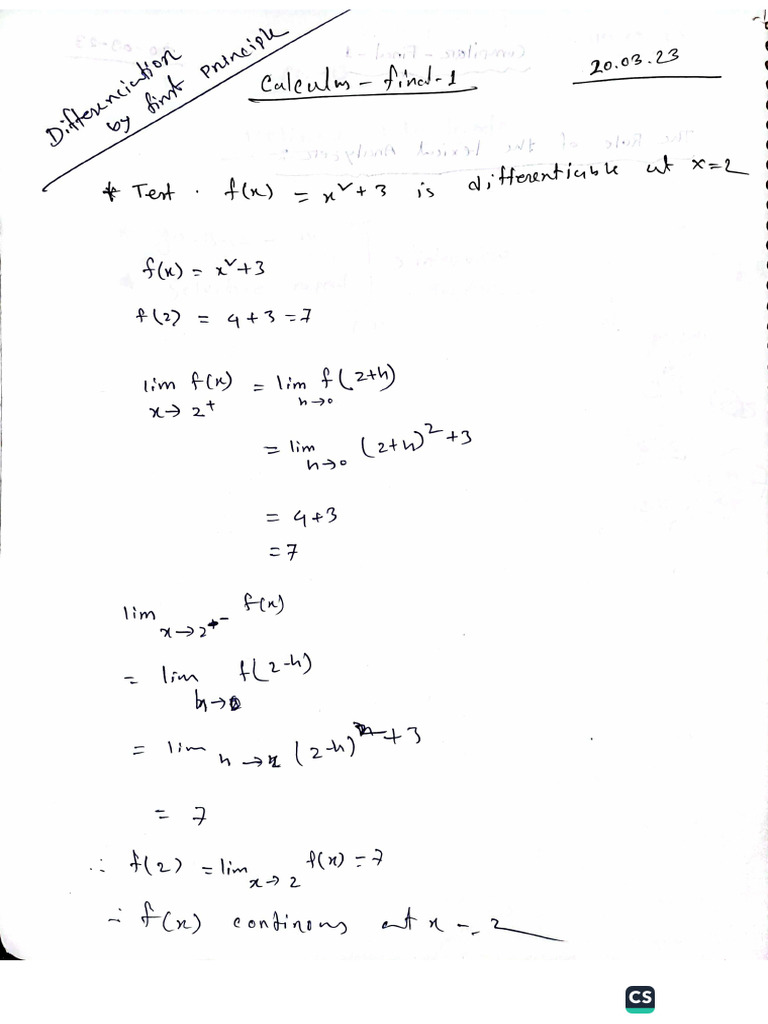 Differenciation
by first principle
Calculus - final-1
20.03.23
* Test . f(x) = x² + 3 is differentiable at x=2
f(x) = x² + 3
f(2) = 4 + 3 = 7
lim x→2⁺ f(x) = lim h→0 f(2+h)
= lim h→0 (2+h)² + 3
= 4+3
= 7
lim x→2⁻ f(x)
= lim h→0 f(2-h)
= lim h→ (2-h) + 3
= 7
∴ f(2) = lim x→2 f(x) = 7
∴ f(x) continous at x = 2
CS